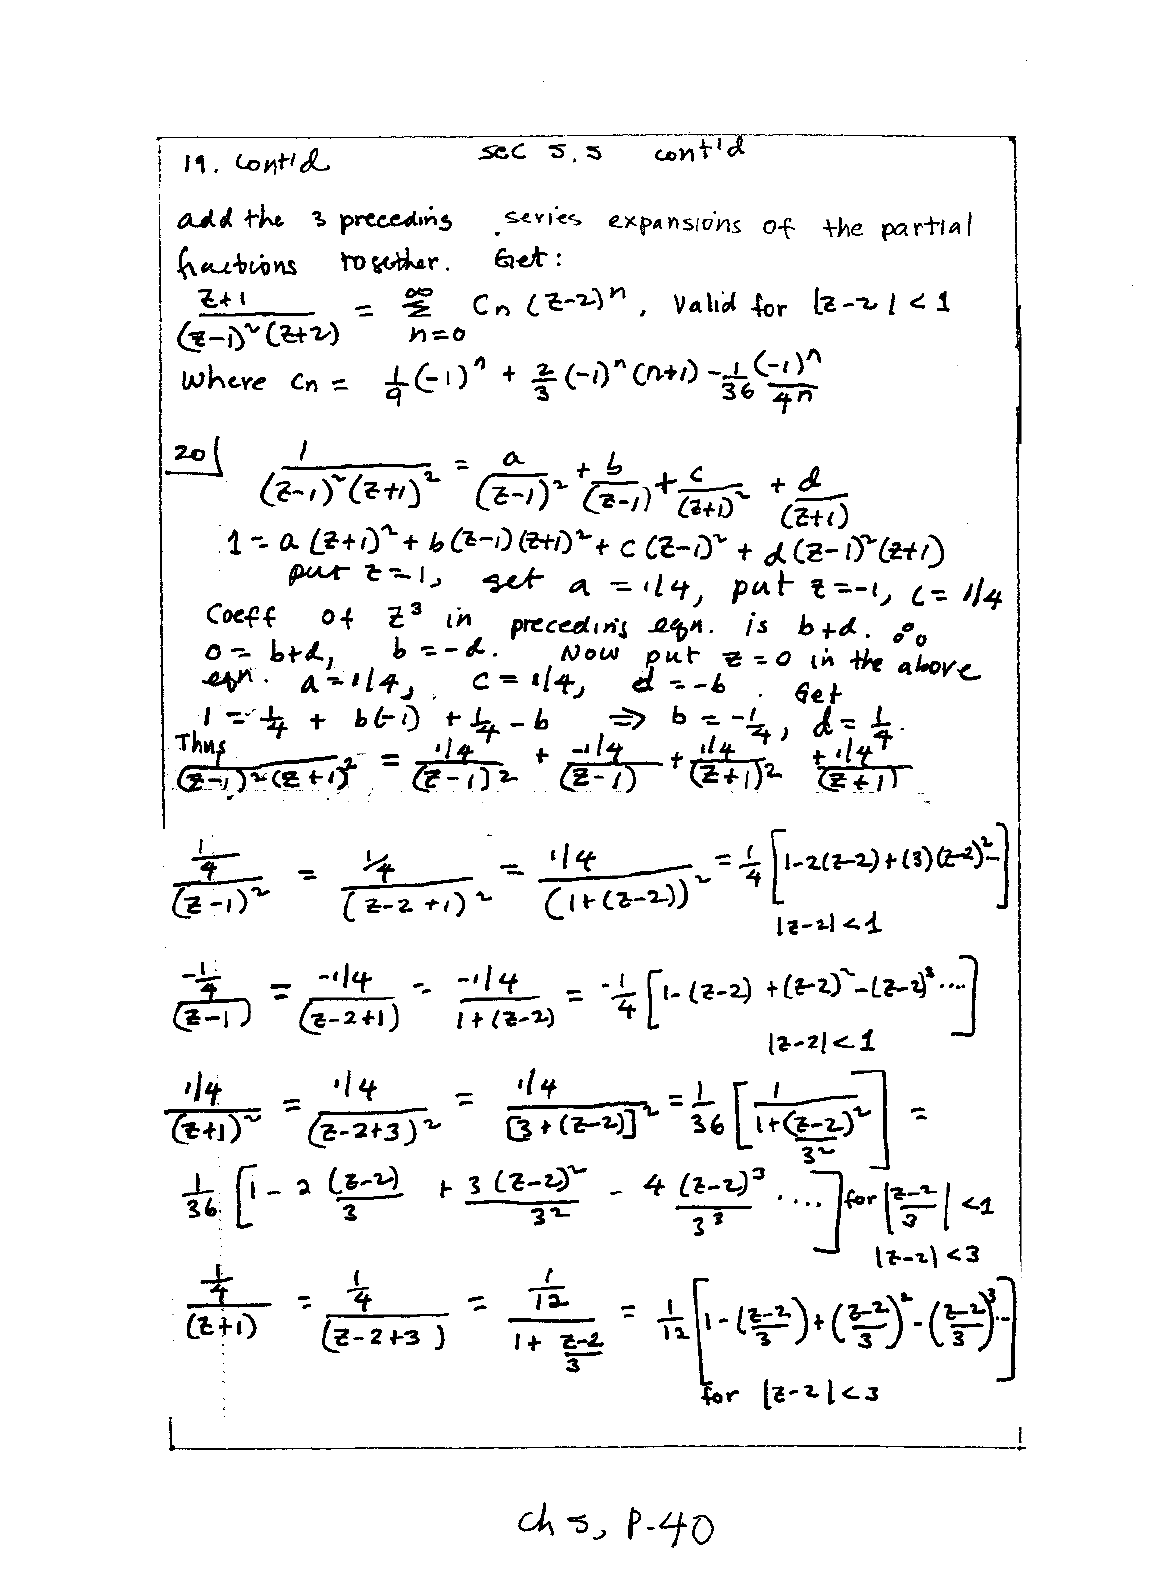 19. cont'd sec 5.5 cont'd
add the 3 preceding series expansions of the partial
fractions together. Get:
(z+1)/((z-1)²(z+2)) = ∑_{n=0}^{∞} Cn (z-2)ⁿ, valid for |z-2| < 1
Where Cn = 1/9 (-1)ⁿ + 2/3 (-1)ⁿ (n+1) - 1/36 (-1)ⁿ/4ⁿ
20] 1/((z-1)²(z+1)²) = a/(z-1)² + b/(z-1) + c/(z+1)² + d/(z+1)
1 = a(z+1)² + b(z-1)(z+1)² + c(z-1)² + d(z-1)²(z+1)
put z=1, get a = 1/4, put z=-1, c = 1/4
Coeff of z³ in preceding eqn. is b+d. ∴
0 = b+d, b = -d. Now put z=0 in the above
eqn. a=1/4, c = 1/4, d = -b. Get
1 = 1/4 + b(-1) + 1/4 - b ⇒ b = -1/4, d = 1/4.
Thus
1/((z-1)²(z+1)²) = 1/4/(z-1)² + -1/4/(z-1) + 1/4/(z+1)² + 1/4/(z+1)
1/4/(z-1)² = 1/4/(z-2+1)² = 1/4/(1+(z-2))² = 1/4 [1-2(z-2)+(3)(z-2)²-]
|z-2|<1
-1/4/(z-1) = -1/4/(z-2+1) = -1/4/(1+(z-2)) = -1/4 [1-(z-2)+(z-2)²-(z-2)³....]
|z-2|<1
1/4/(z+1)² = 1/4/(z-2+3)² = 1/4/[3+(z-2)]² = 1/36 [1/(1+(z-2)²/3²)] =
1/36 [1 - 2(z-2)/3 + 3(z-2)²/3² - 4(z-2)³/3³ ....] for |(z-2)/3| <1
|z-2| <3
1/4/(z+1) = 1/4/(z-2+3) = 1/12/(1+(z-2)/3) = 1/12 [1-((z-2)/3)+((z-2)/3)²-((z-2)/3)³..]
for |z-2|<3
ch 5, P-40